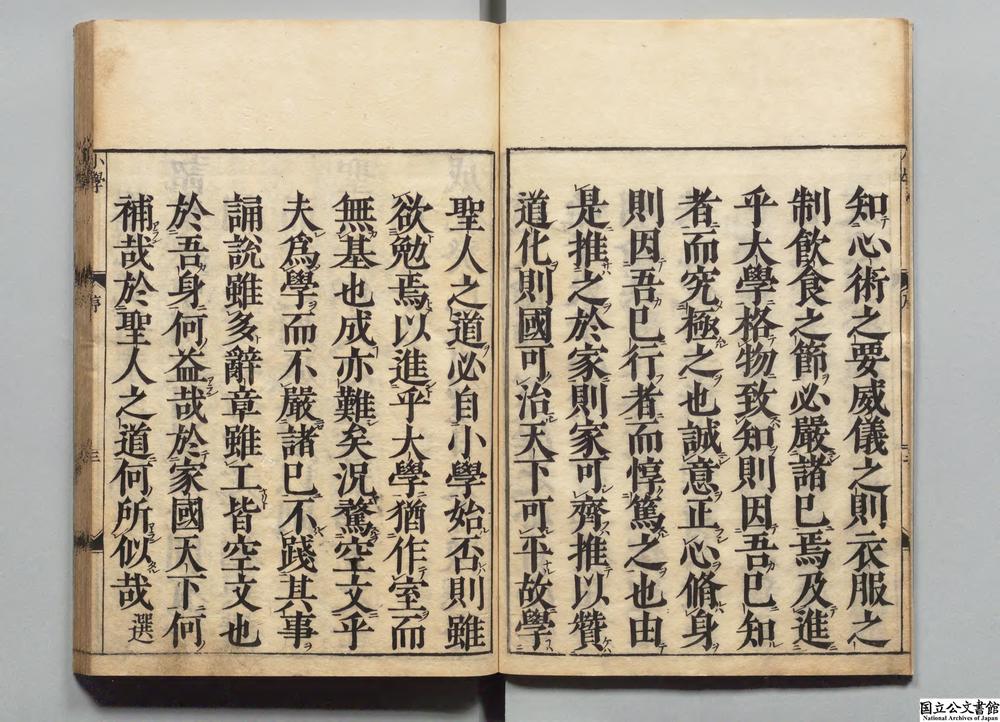 知心術之要威儀之則衣服之
制飲食之節必嚴諸已焉及進
乎大學格物致知則因吾已知
者而究極之也誠意正心脩身
則因吾已行者而惇篤之也由
是推之於家則家可齊推以贊
道化則國可治天下可平故學
聖人之道必自小學始否則雖
欲勉焉以進乎大學猶作室而
無基也成亦難矣況騖空文乎
夫爲學而不嚴諸已不踐其事
誦說雖多辭章雖工皆空文也
於吾身何益哉於家國天下何
補哉於聖人之道何所似哉 選
小學 序 三
国立公文書館
National Archives of Japan